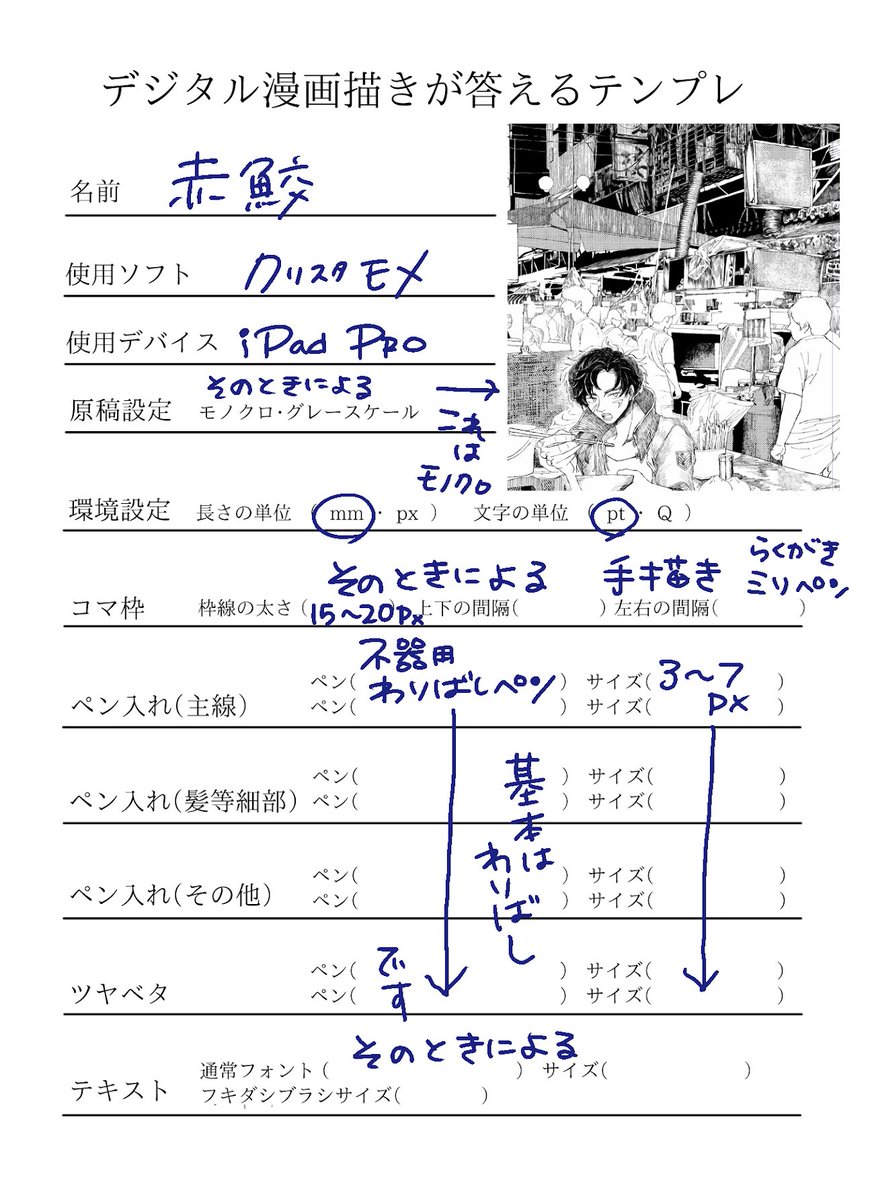 デジタル漫画描きが答えるテンプレ
名前 赤鮫
使用ソフト クリスタEX
使用デバイス iPad Pro
そのときによる
原稿設定 モノクロ・グレースケール
→
これ
は
モノクロ
環境設定 長さの単位 ( mm ・ px ) 文字の単位 ( pt ・ Q )
そのときによる 手描き らくがき
ミリペン
コマ枠 枠線の太さ ( ) 上下の間隔( ) 左右の間隔( )
15〜20px
不器用
わりばしペン
3〜7
px
ペン入れ(主線) ペン( ) サイズ( )
ペン( ) サイズ( )
ペン入れ(髪等細部) ペン( ) サイズ( )
ペン( ) サイズ( )
基本は
わりばし
です
ペン入れ(その他) ペン( ) サイズ( )
ペン( ) サイズ( )
ツヤベタ ペン( ) サイズ( )
ペン( ) サイズ( )
そのときによる
テキスト 通常フォント ( ) サイズ( )
フキダシブラシサイズ( )